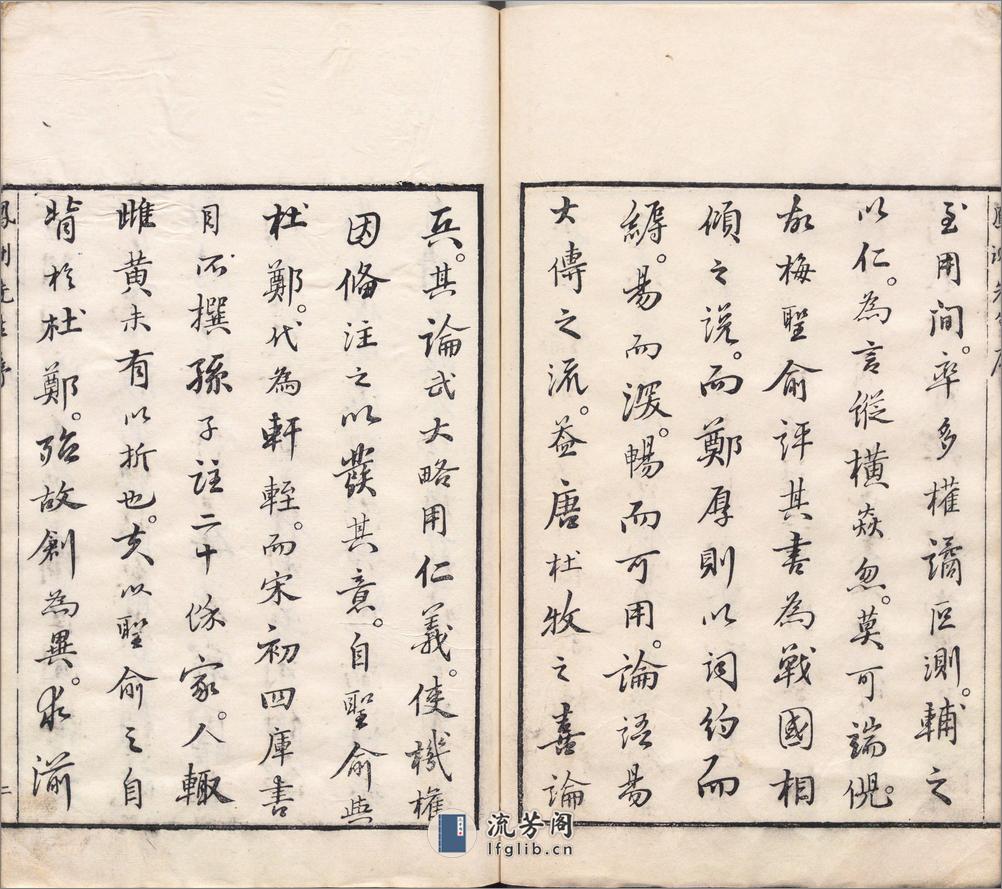 至用間。率多權譎叵測。輔之
以仁。為言縱橫焱忽。莫可端倪。
故梅聖俞評其書為戰國相
傾之說。而鄭厚則以詞約而
縟。易而深。暢而可用。論語易
大傳之流。益唐杜牧之喜論
兵。其論武大略用仁義。使機權
因備注之以發其意。自聖俞與
杜鄭。代為軒輊。而宋初四庫書
目不撰孫子註二十餘家。人輒
雌黃未有以折也。夫以聖俞之自
背於杜鄭。殆故創為異。求湔
二
流芳阁
lfglib.cn